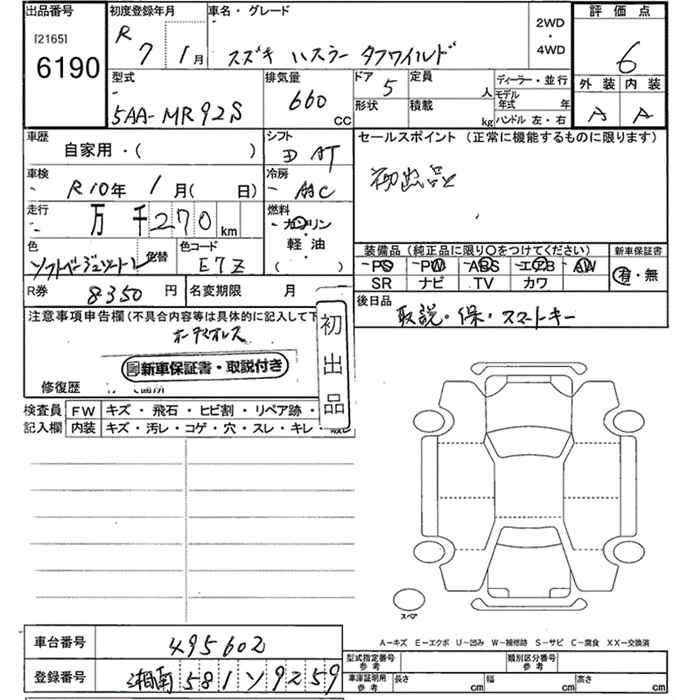 出品番号
[2165]
6190
初度登録年月
R 7 1月
車名・グレード
スズキ ハスラー タフワイルド
2WD
・
4WD
評価点
6
外装 内装
A A
型式
5AA-MR92S
排気量
660 cc
ドア 5
定員 人
形状
積載 kg
ディーラー・並行
モデル年式 年
ハンドル 左・右
車歴
自家用・( )
シフト
AT
セールスポイント (正常に機能するものに限ります)
初出品
車検
R10年 1月( 日)
冷房
AAC
走行
万 千 270 km
燃料
ガソリン
軽油
( )
色
色替
色コード
E7Z
装備品 (純正品に限り○をつけてください)
PS PW ABS エアB AW
SR ナビ TV カワ
新車保証書
有・無
R券 8350円
名変期限 月
後日品
取説・保・スマートキー
注意事項申告欄(不具合内容等は具体的に記入して下
オーディオレス
新車保証書・取説付き
初出品
修復歴
検査員記入欄
FW キズ・飛石・ヒビ割・リペア跡・
内装 キズ・汚レ・コゲ・穴・スレ・キレ・
スペア
A-キズ E-エクボ U-凹み W-補修跡 S-サビ C-腐食 XX-交換済
車台番号 495602
登録番号 湘南 581 ソ 9259
型式指定番号 参考
類別区分番号 参考
車庫証明用 参考 長さ cm 幅 cm 高さ cm